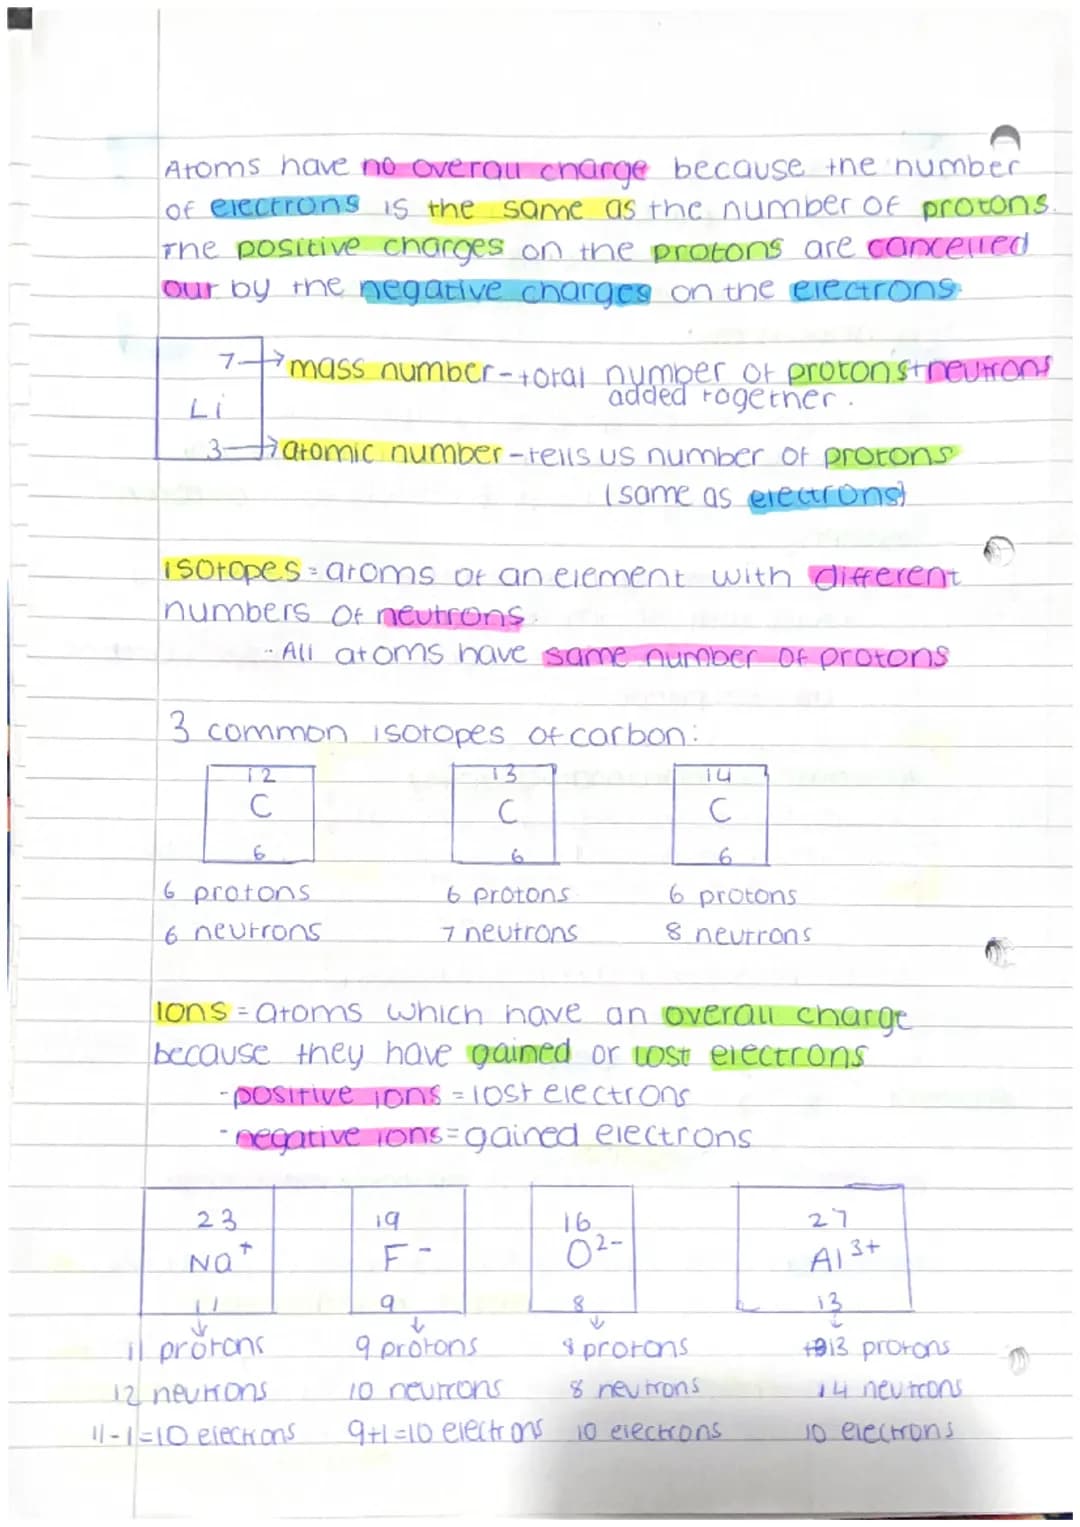 Atoms have no overall charge because the number
of electrons is the same as the number of protons.
The positive charges on the protons are cancelled
our by the negative charges on the electrons.
7 → mass number - total number of protons + neutrons
added together.
Li
3 → atomic number - tells us number of protons
(same as electrons)
isotopes = atoms of an element with different
numbers of neutrons.
- All atoms have same number of protons
3 common isotopes of carbon:
12 13 14
C C C
6 6 6
6 protons 6 protons 6 protons
6 neutrons 7 neutrons 8 neutrons
Ions = atoms which have an overall charge
because they have gained or lost electrons
- positive ions = lost electrons
- negative ions = gained electrons
23 19 16 27
Na⁺ F⁻ O²⁻ Al³⁺
11 9 8 13
11 protons 9 protons 8 protons 13 protons
12 neutrons 10 neutrons 8 neutrons 14 neutrons
11-1=10 electrons 9+1=10 electrons 10 electrons 10 electrons